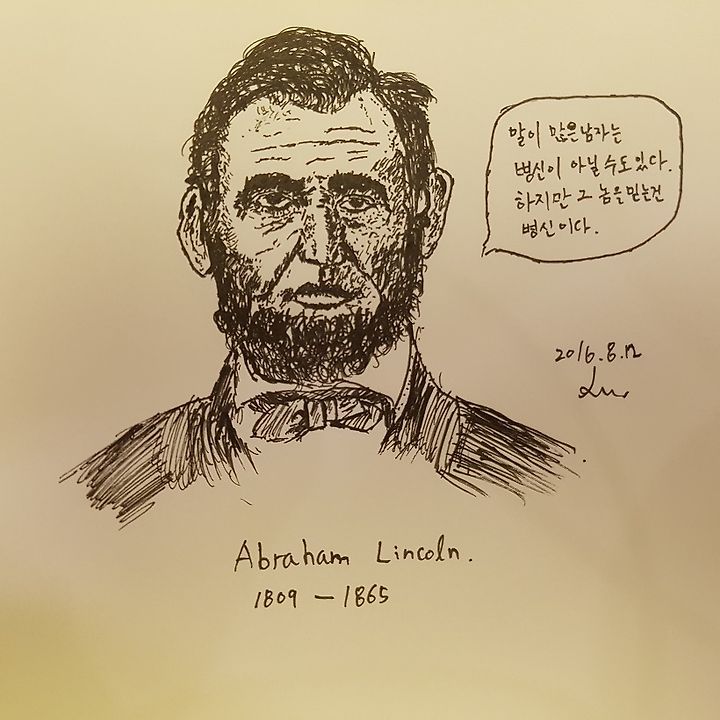 말이 많은 남자는
병신이 아닐 수도 있다.
하지만 그 놈을 믿는건
병신이다.
2016.8.12
Abraham Lincoln.
1809 - 1865